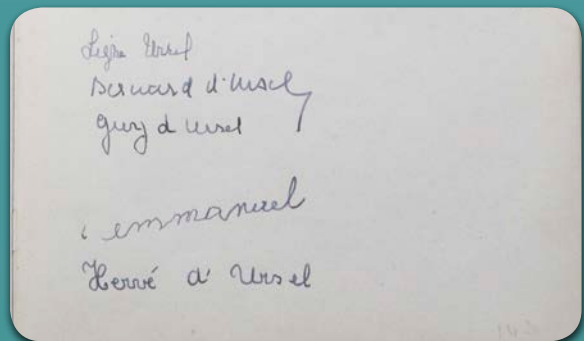 Ligne Ursel
Bernard d'Ursel
Guy d Ursel
emmanuel
Hervé d' Ursel